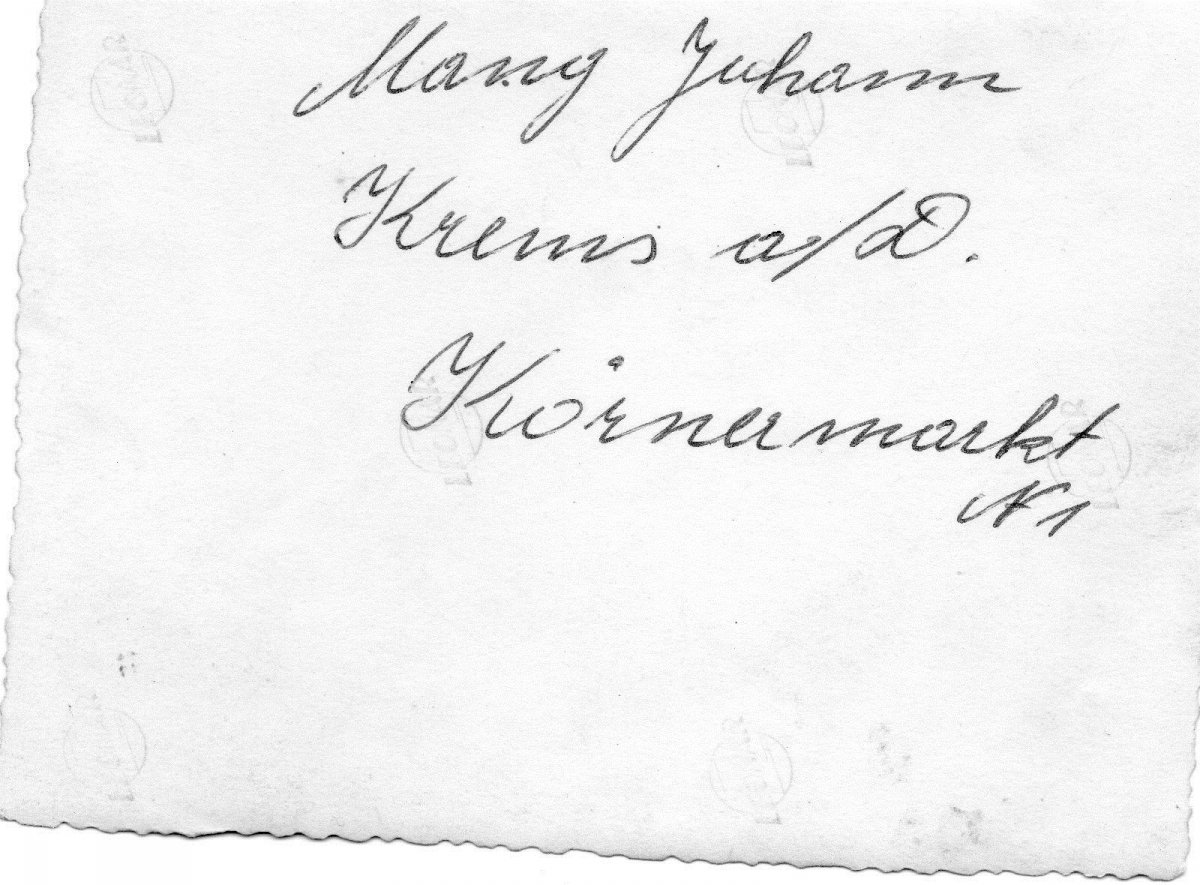 Mang Johann
Krems a/D.
Körnermarkt
N 1